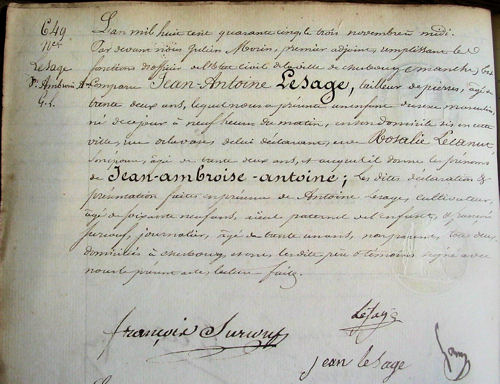 649
Nce
Lesage
Jn Ambroise A.
L'an mil huit cent quarante cinq le trois novembre à midi.
Par devant nous Julien Morin, premier adjoint, remplissant les
fonctions d'officier de l'Etat civil de la ville de cherbourg (manche) est
comparu Jean-Antoine Lesage, tailleur de pierres, âgé de
trente deux ans, lequel nous a présenté un enfant du sexe masculin
né de ce jour à neuf heures du matin, en son domicile sis en cette
ville, rue de lui déclarant, et de Rosalie
âgée de trente deux ans, et auquel il donne les prénoms
de Jean-ambroise-antoine; les dites déclaration &
présentation faites en présence de Antoine Lesage, cultivateur,
âgé de soixante neuf ans, aïeul paternel de l'enfant, & françois
journalier, âgé de trente un ans, non parent, tous deux
domiciliés à cherbourg, et ont les dits père & témoins signé avec
nous le présent acte, lecture faite.
françois
LeSage
jean lesage